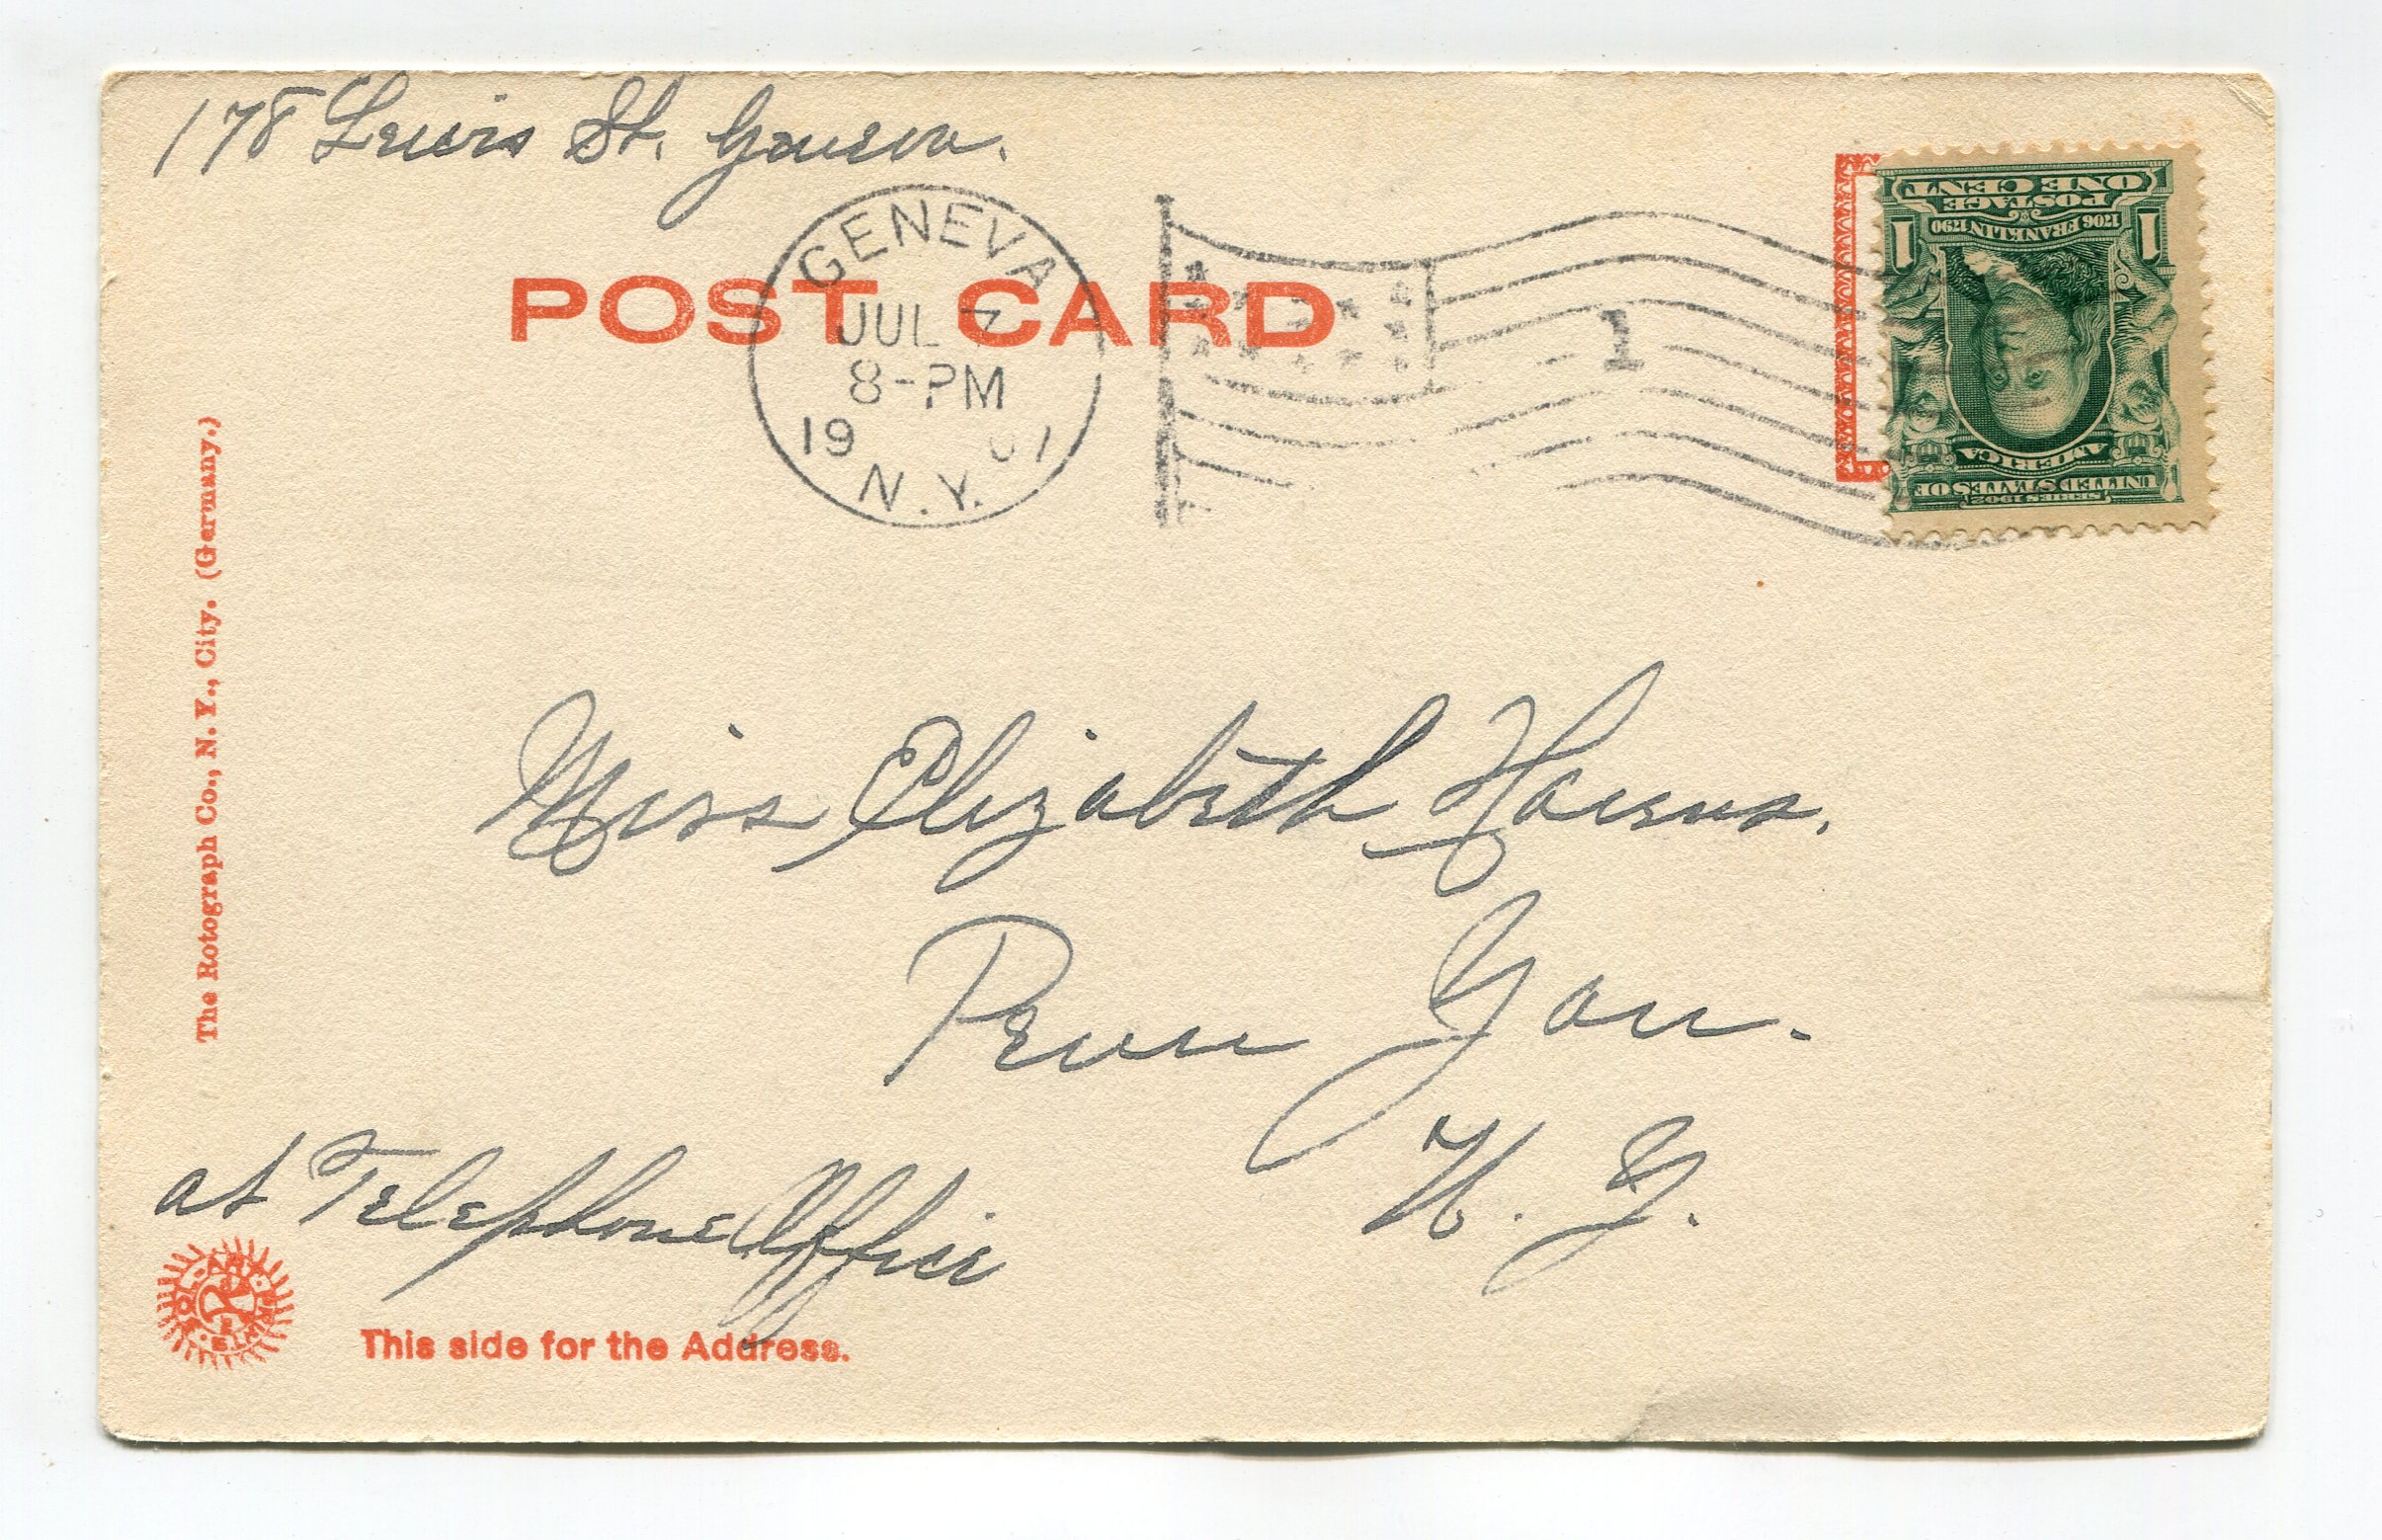 178 Lewis St. Geneva.
GENEVA
JUL 7
8-PM
19 07
N.Y.
POST CARD
1
SERIES 1902
UNITED STATES OF
AMERICA
1 1706 FRANKLIN 1790 1
POSTAGE
ONE CENT
The Rotograph Co., N. Y., City. (Germany.)
Miss Elizabeth Havens.
Penn Yan.
N. Y.
at Telephone Office
SOL-ART PRINTS
This side for the Address.